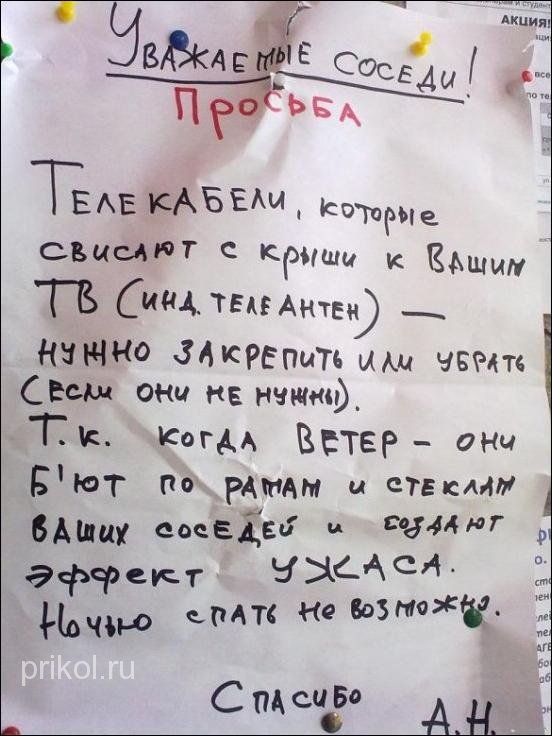 Уважаемые соседи!
Просьба
Телекабели, которые
свисают с крыши к Вашим
ТВ (инд. телеантен) —
нужно закрепить или убрать
(если они не нужны).
Т.к. когда ВЕТЕР – они
б'ют по рамам и стеклам
ваших соседей и создают
эффект УЖАСА.
Ночью спать не возможно.
Спасибо
А.Н.
prikol.ru
АКЦИЯ!